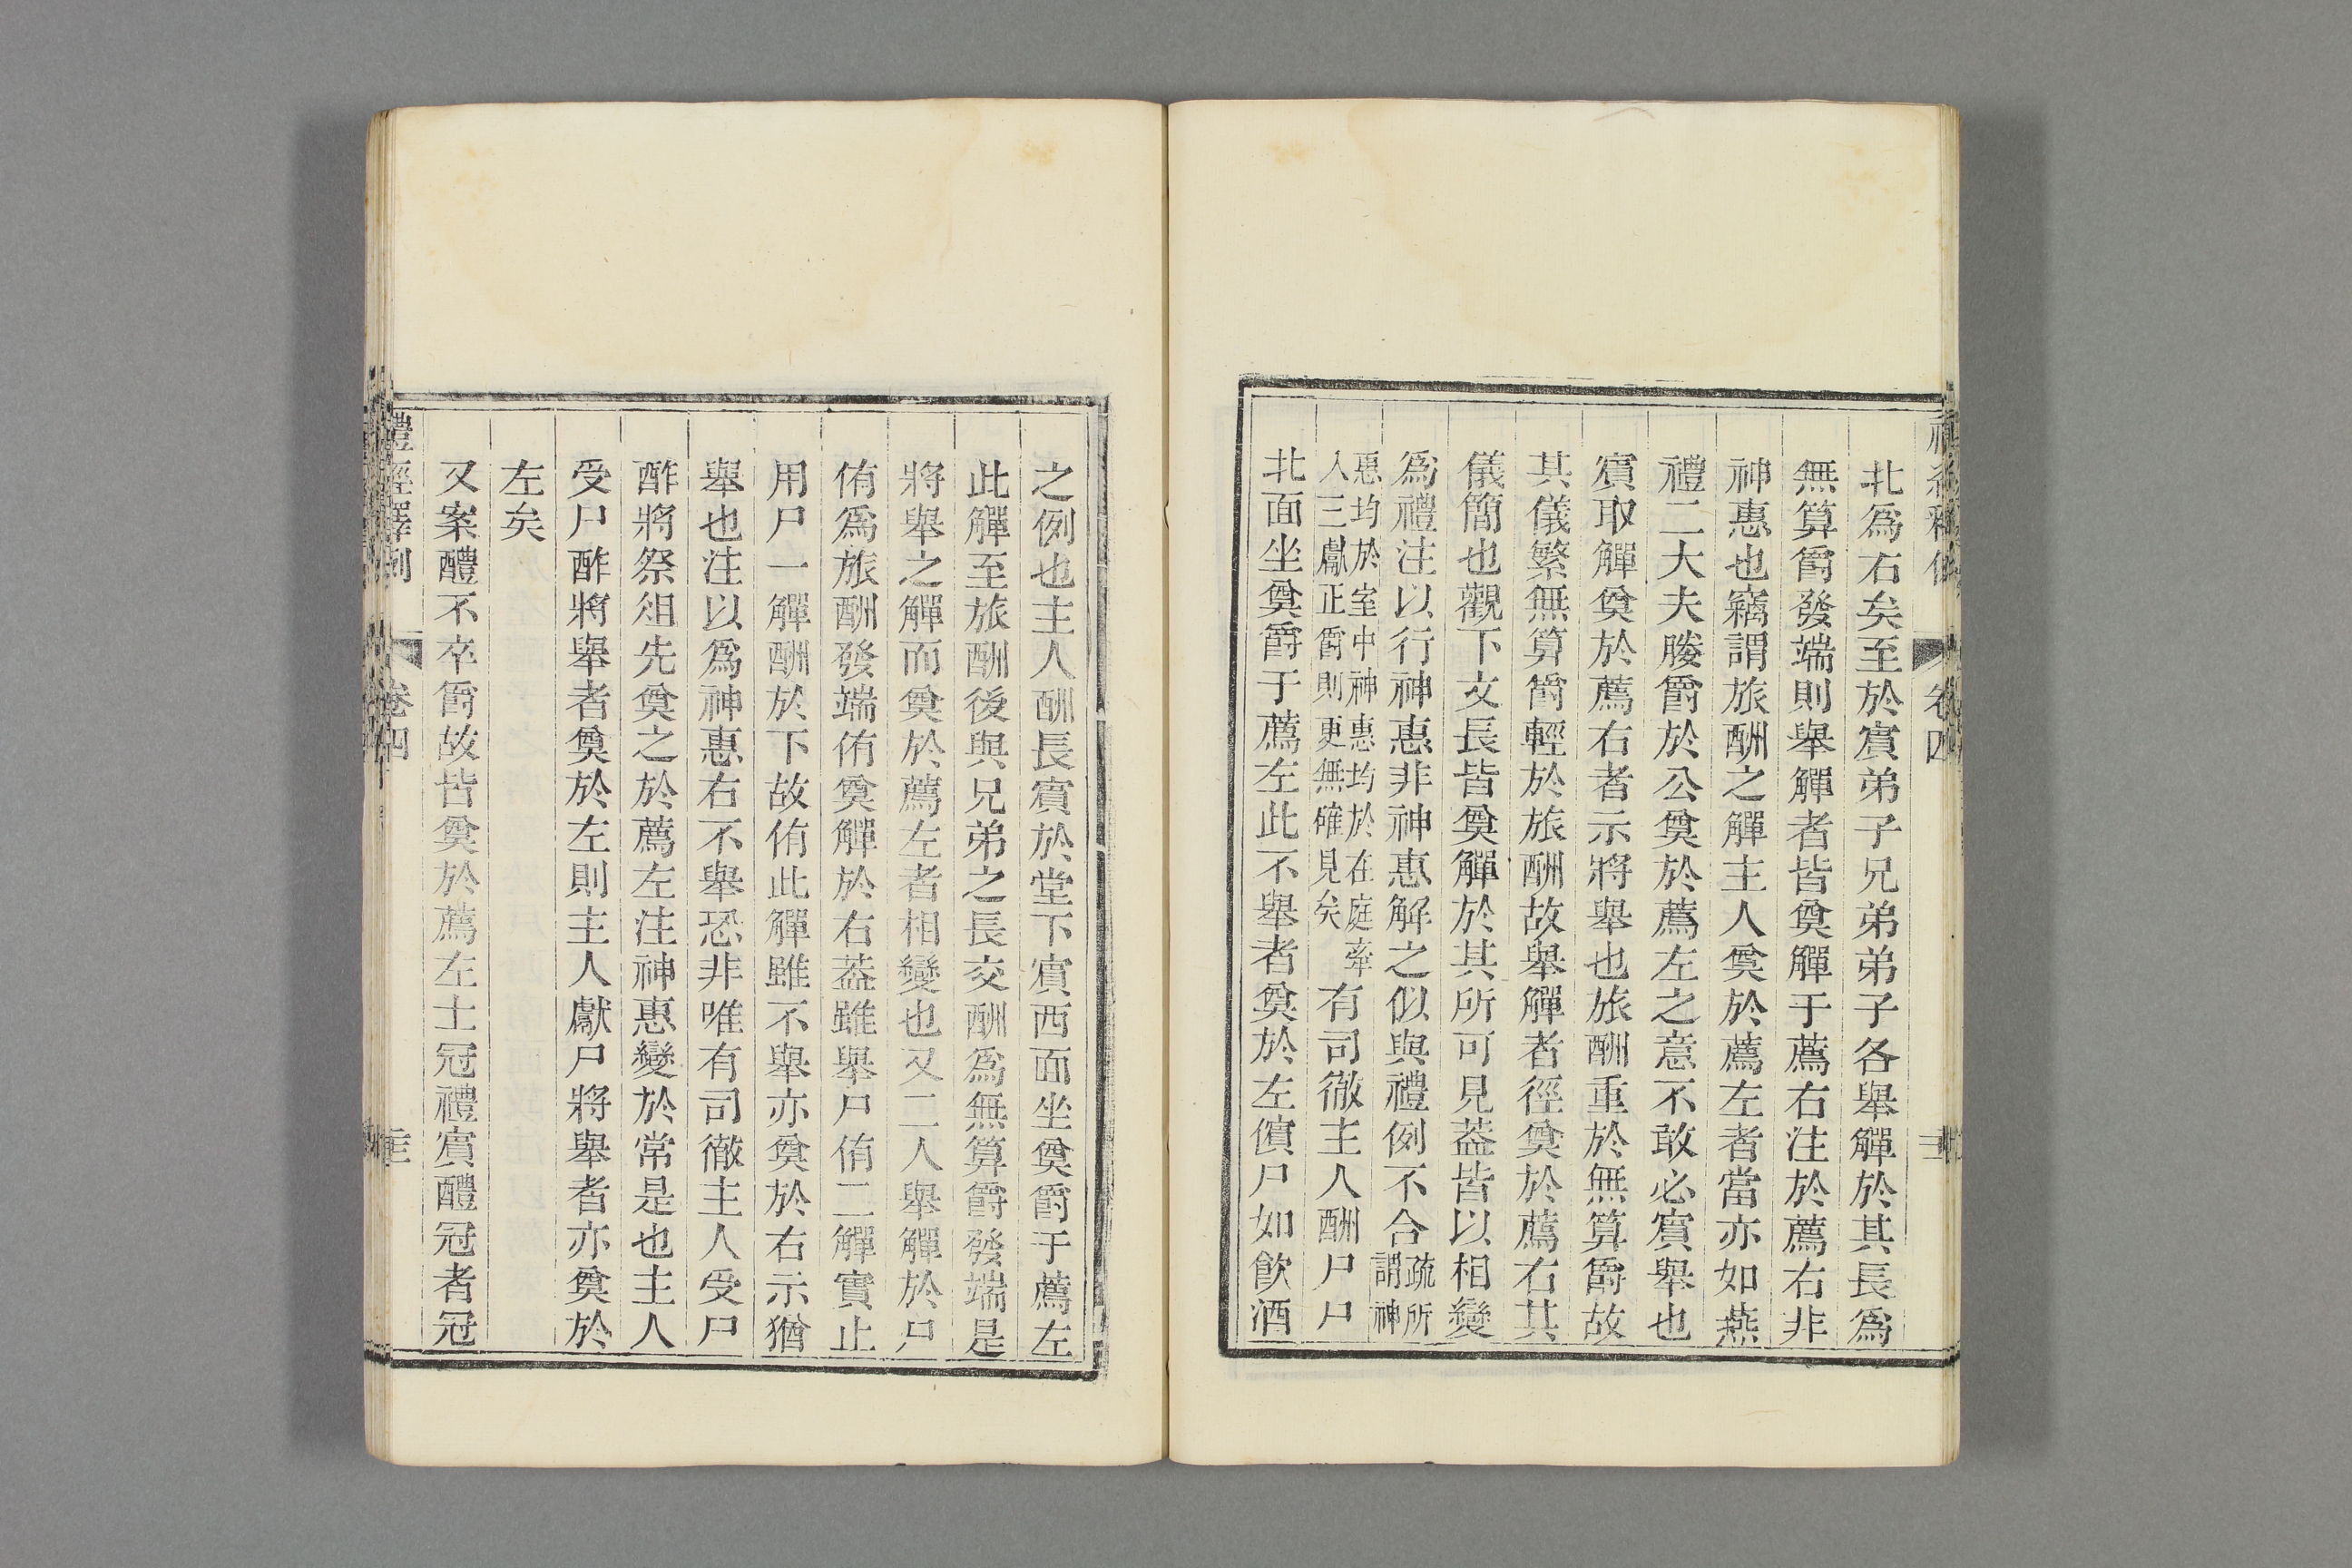 北爲右矣至於賓弟子兄弟弟子各舉觶於其長爲
無算爵發端則舉觶者皆奠觶于薦右注於薦右非
神惠也竊謂旅酬之觶主人奠於薦左者當亦如燕
禮二大夫媵爵於公奠於薦左之意不敢必賓舉也
賓取觶奠於薦右者示將舉也旅酬重於無算爵故
其儀繁無算爵輕於旅酬故舉觶者徑奠於薦右其
儀簡也觀下文長皆奠觶於其所可見葢皆以相變
爲禮注以行神惠非神惠解之似與禮例不合疏所謂神
惠均於室中神惠均於在庭牽入三獻正爵則更無確見矣有司徹主人酬尸尸
北面坐奠爵于薦左此不舉者奠於左儐尸如飮酒
之例也主人酬長賓於堂下賓西面坐奠爵于薦左
此觶至旅酬後與兄弟之長交酬爲無算爵發端是
將舉之觶而奠於薦左者相變也又二人舉觶於尸
侑爲旅酬發端侑奠觶於右葢雖舉尸侑二觶實止
用尸一觶酬於下故侑此觶雖不舉亦奠於右示猶
舉也注以爲神惠右不舉恐非唯有司徹主人受尸
酢將祭俎先奠之於薦左注神惠變於常是也主人
受尸酢將舉者奠於左則主人獻尸將舉者亦奠於
左矣
又案醴不卒爵故皆奠於薦左士冠禮賓醴冠者冠
禮經釋例 卷四